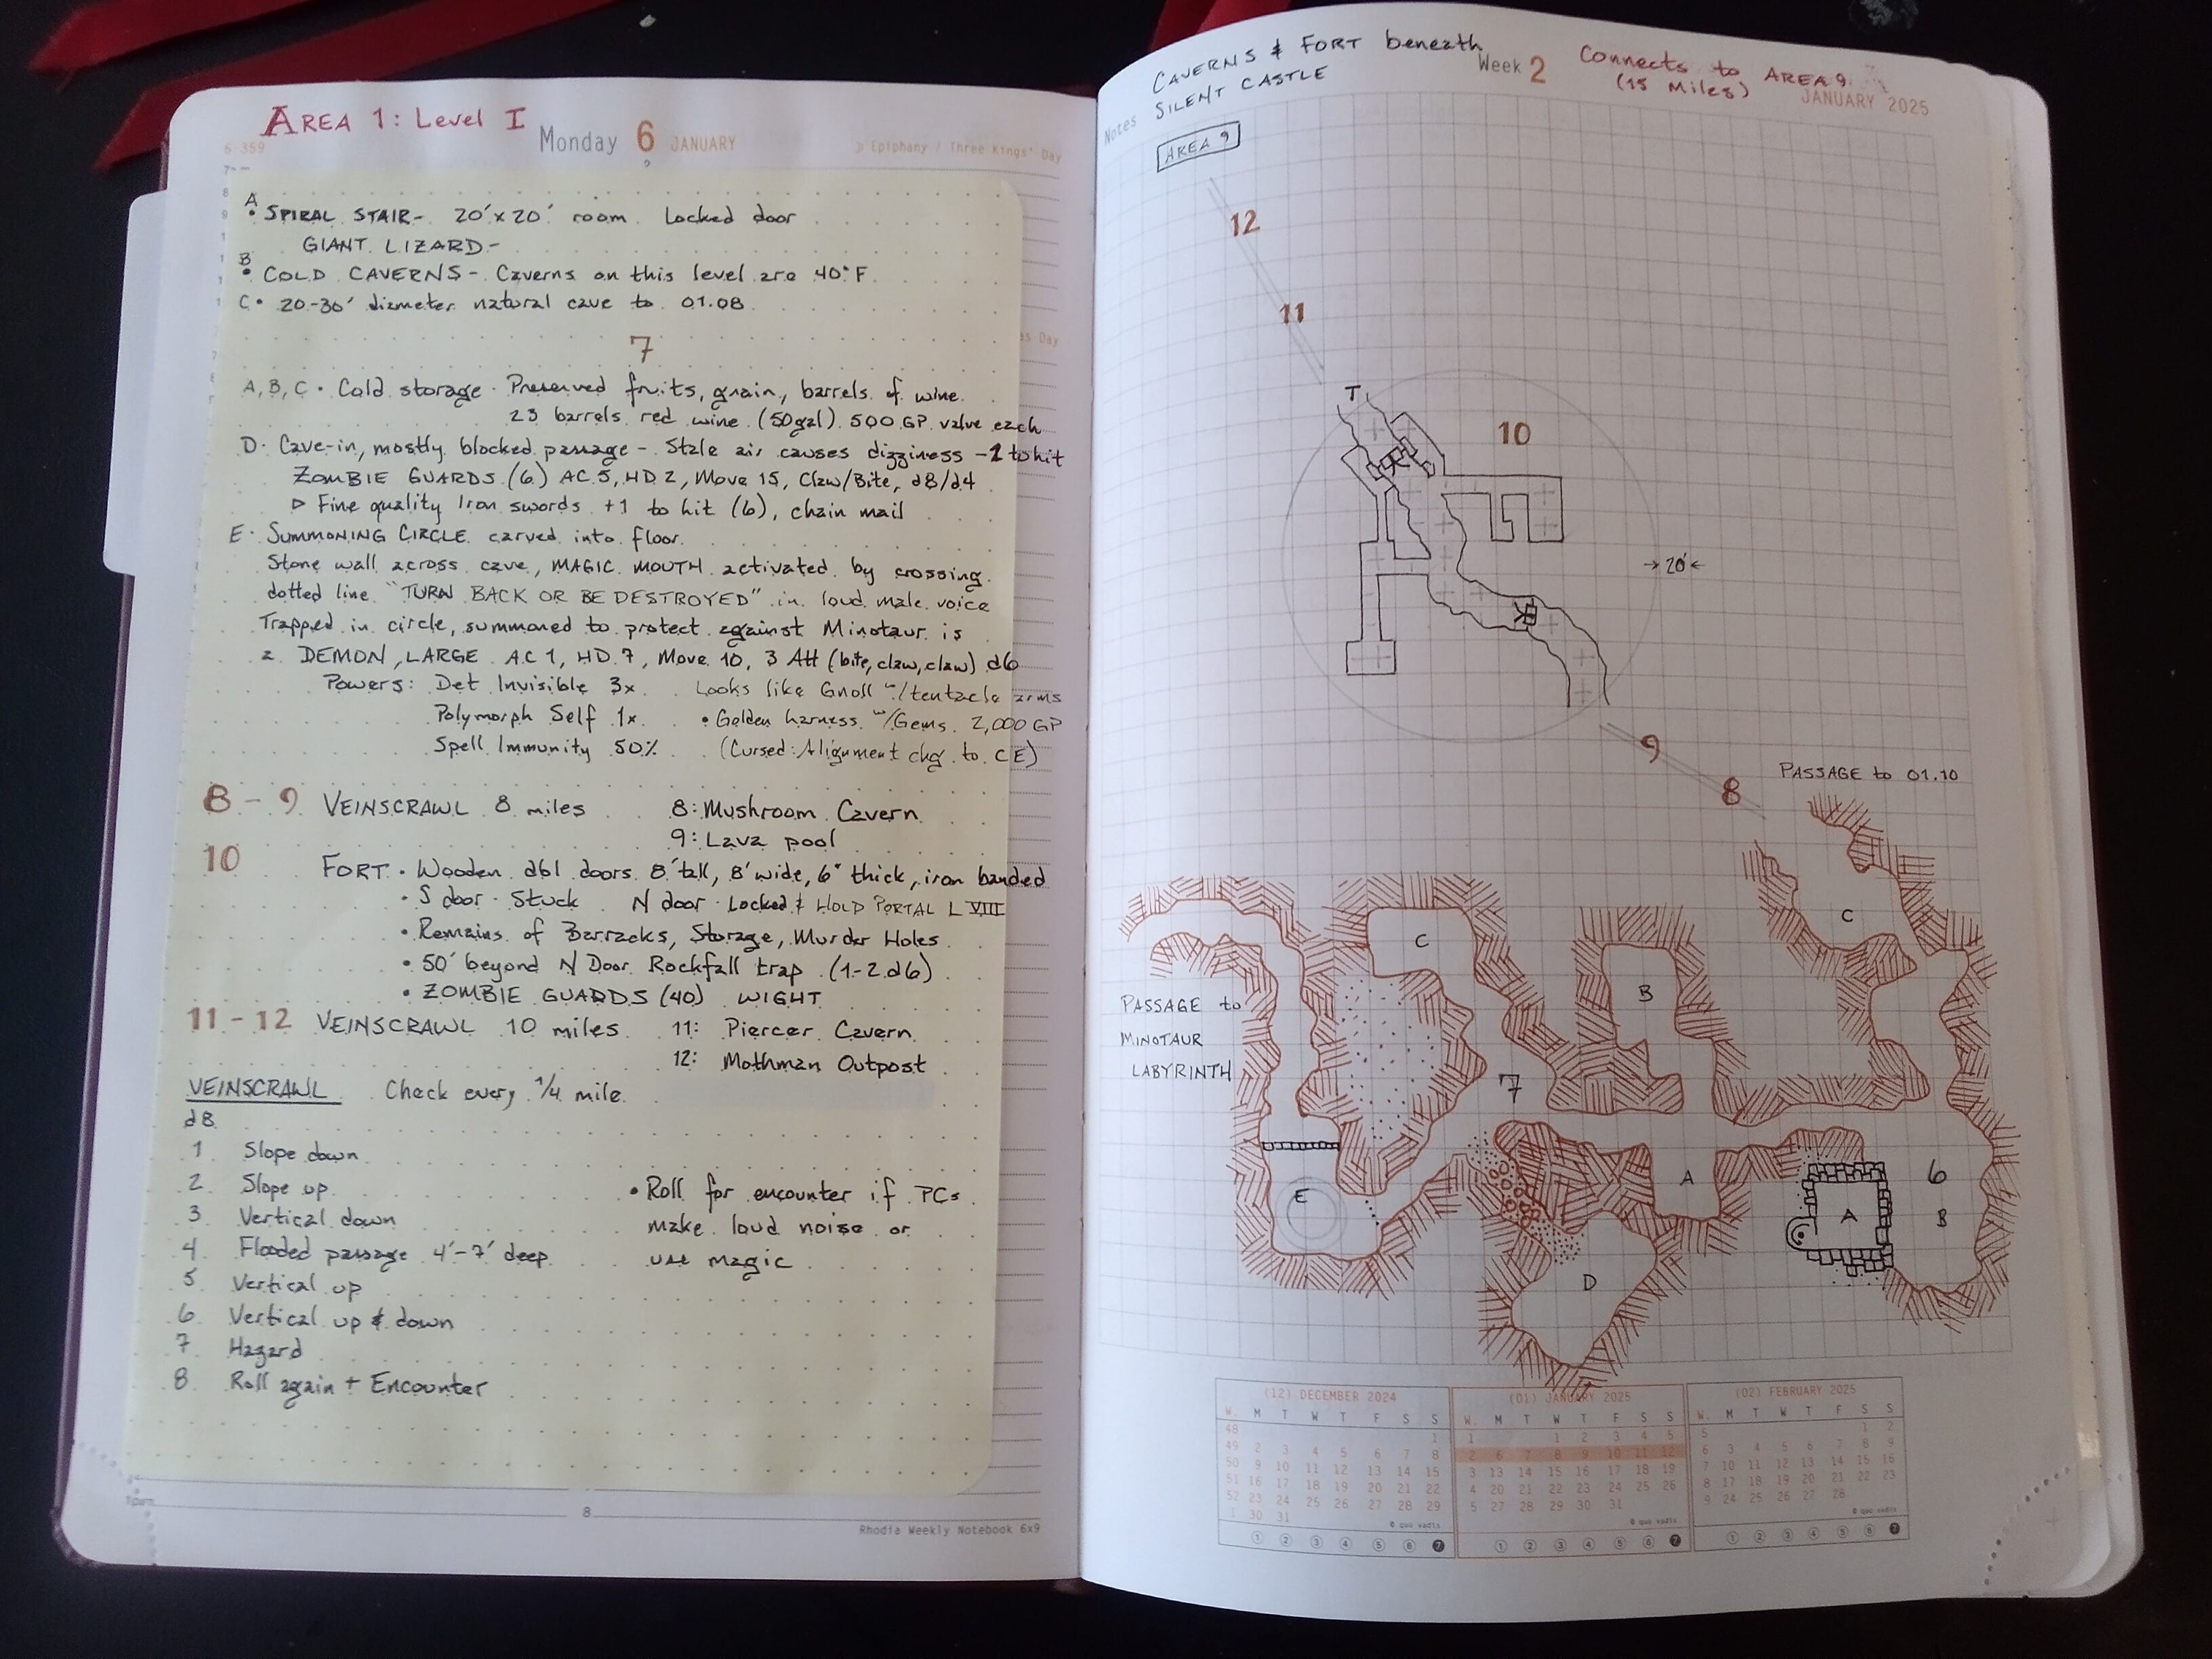 AREA 1: Level I
Monday 6 JANUARY
6-359
Epiphany / Three Kings' Day
A
• SPIRAL STAIR- 20'x20' room. Locked door
GIANT LIZARD-
B
• COLD CAVERNS- Caverns on this level are 40°F.
C• 20-30' diameter natural cave to 01.08
7
A, B, C • Cold storage - Preserved fruits, grain, barrels of wine.
23 barrels red wine (50gal) 500 GP value each
D• Cave-in, mostly blocked passage - Stale air causes dizziness -1 to hit
ZOMBIE GUARDS (6) AC 5, HD 2, Move 15, Claw/Bite, d8/d4
▷ Fine quality Iron swords +1 to hit (6), chain mail
E• SUMMONING CIRCLE carved into floor.
Stone wall across cave, MAGIC MOUTH activated by crossing
dotted line "TURN BACK OR BE DESTROYED" in loud male voice
Trapped in circle, summoned to protect against Minotaur is
a DEMON, LARGE AC 1, HD 7, Move 10, 3 Att (bite, claw, claw) d6
Powers: Det Invisible 3x Looks like Gnoll w/tentacle arms
Polymorph Self 1x • Golden harness w/Gems 2,000 GP
Spell Immunity 50% (Cursed: Alignment chg to CE)
8 - 9 VEINSCRAWL 8 miles 8: Mushroom Cavern
9: Lava pool
10 FORT • Wooden dbl doors 8' tall, 8' wide, 6" thick, iron banded
• S door - Stuck N door - Locked & HOLD PORTAL L VIII
• Remains of Barracks, Storage, Murder Holes
• 50' beyond N Door Rockfall trap (1-2 d6)
• ZOMBIE GUARDS (40) WIGHT
11 - 12 VEINSCRAWL 10 miles 11: Piercer Cavern
12: Mothman Outpost
VEINSCRAWL Check every 1/4 mile
d8
1 Slope down
2 Slope up
3 Vertical down
4 Flooded passage 4'-7' deep
5 Vertical up
6 Vertical up & down
7 Hazard
8 Roll again + Encounter
• Roll for encounter if PCs
make loud noise or
use magic
8
Rhodia Weekly Notebook 6x9
CAVERNS & FORT beneath
SILENT CASTLE
Week 2
Connects to AREA 9
(15 Miles)
JANUARY 2025
Notes
AREA 9
12
11
T
10
→20'←
9
8
PASSAGE to 01.10
C
C
B
PASSAGE to
MINOTAUR
LABYRINTH
7
E
A
A
6
B
D
(12) DECEMBER 2024
W. M T W T F S S
48 1
49 2 3 4 5 6 7 8
50 9 10 11 12 13 14 15
51 16 17 18 19 20 21 22
52 23 24 25 26 27 28 29
1 30 31
© quo vadis
① ② ③ ④ ⑤ ⑥ ❼
(01) JANUARY 2025
W. M T W T F S S
1 1 2 3 4 5
2 6 7 8 9 10 11 12
3 13 14 15 16 17 18 19
4 20 21 22 23 24 25 26
5 27 28 29 30 31
© quo vadis
① ② ③ ④ ⑤ ⑥ ❼
(02) FEBRUARY 2025
W. M T W T F S S
5 1 2
6 3 4 5 6 7 8 9
7 10 11 12 13 14 15 16
8 17 18 19 20 21 22 23
9 24 25 26 27 28
© quo vadis
① ② ③ ④ ⑤ ⑥ ❼